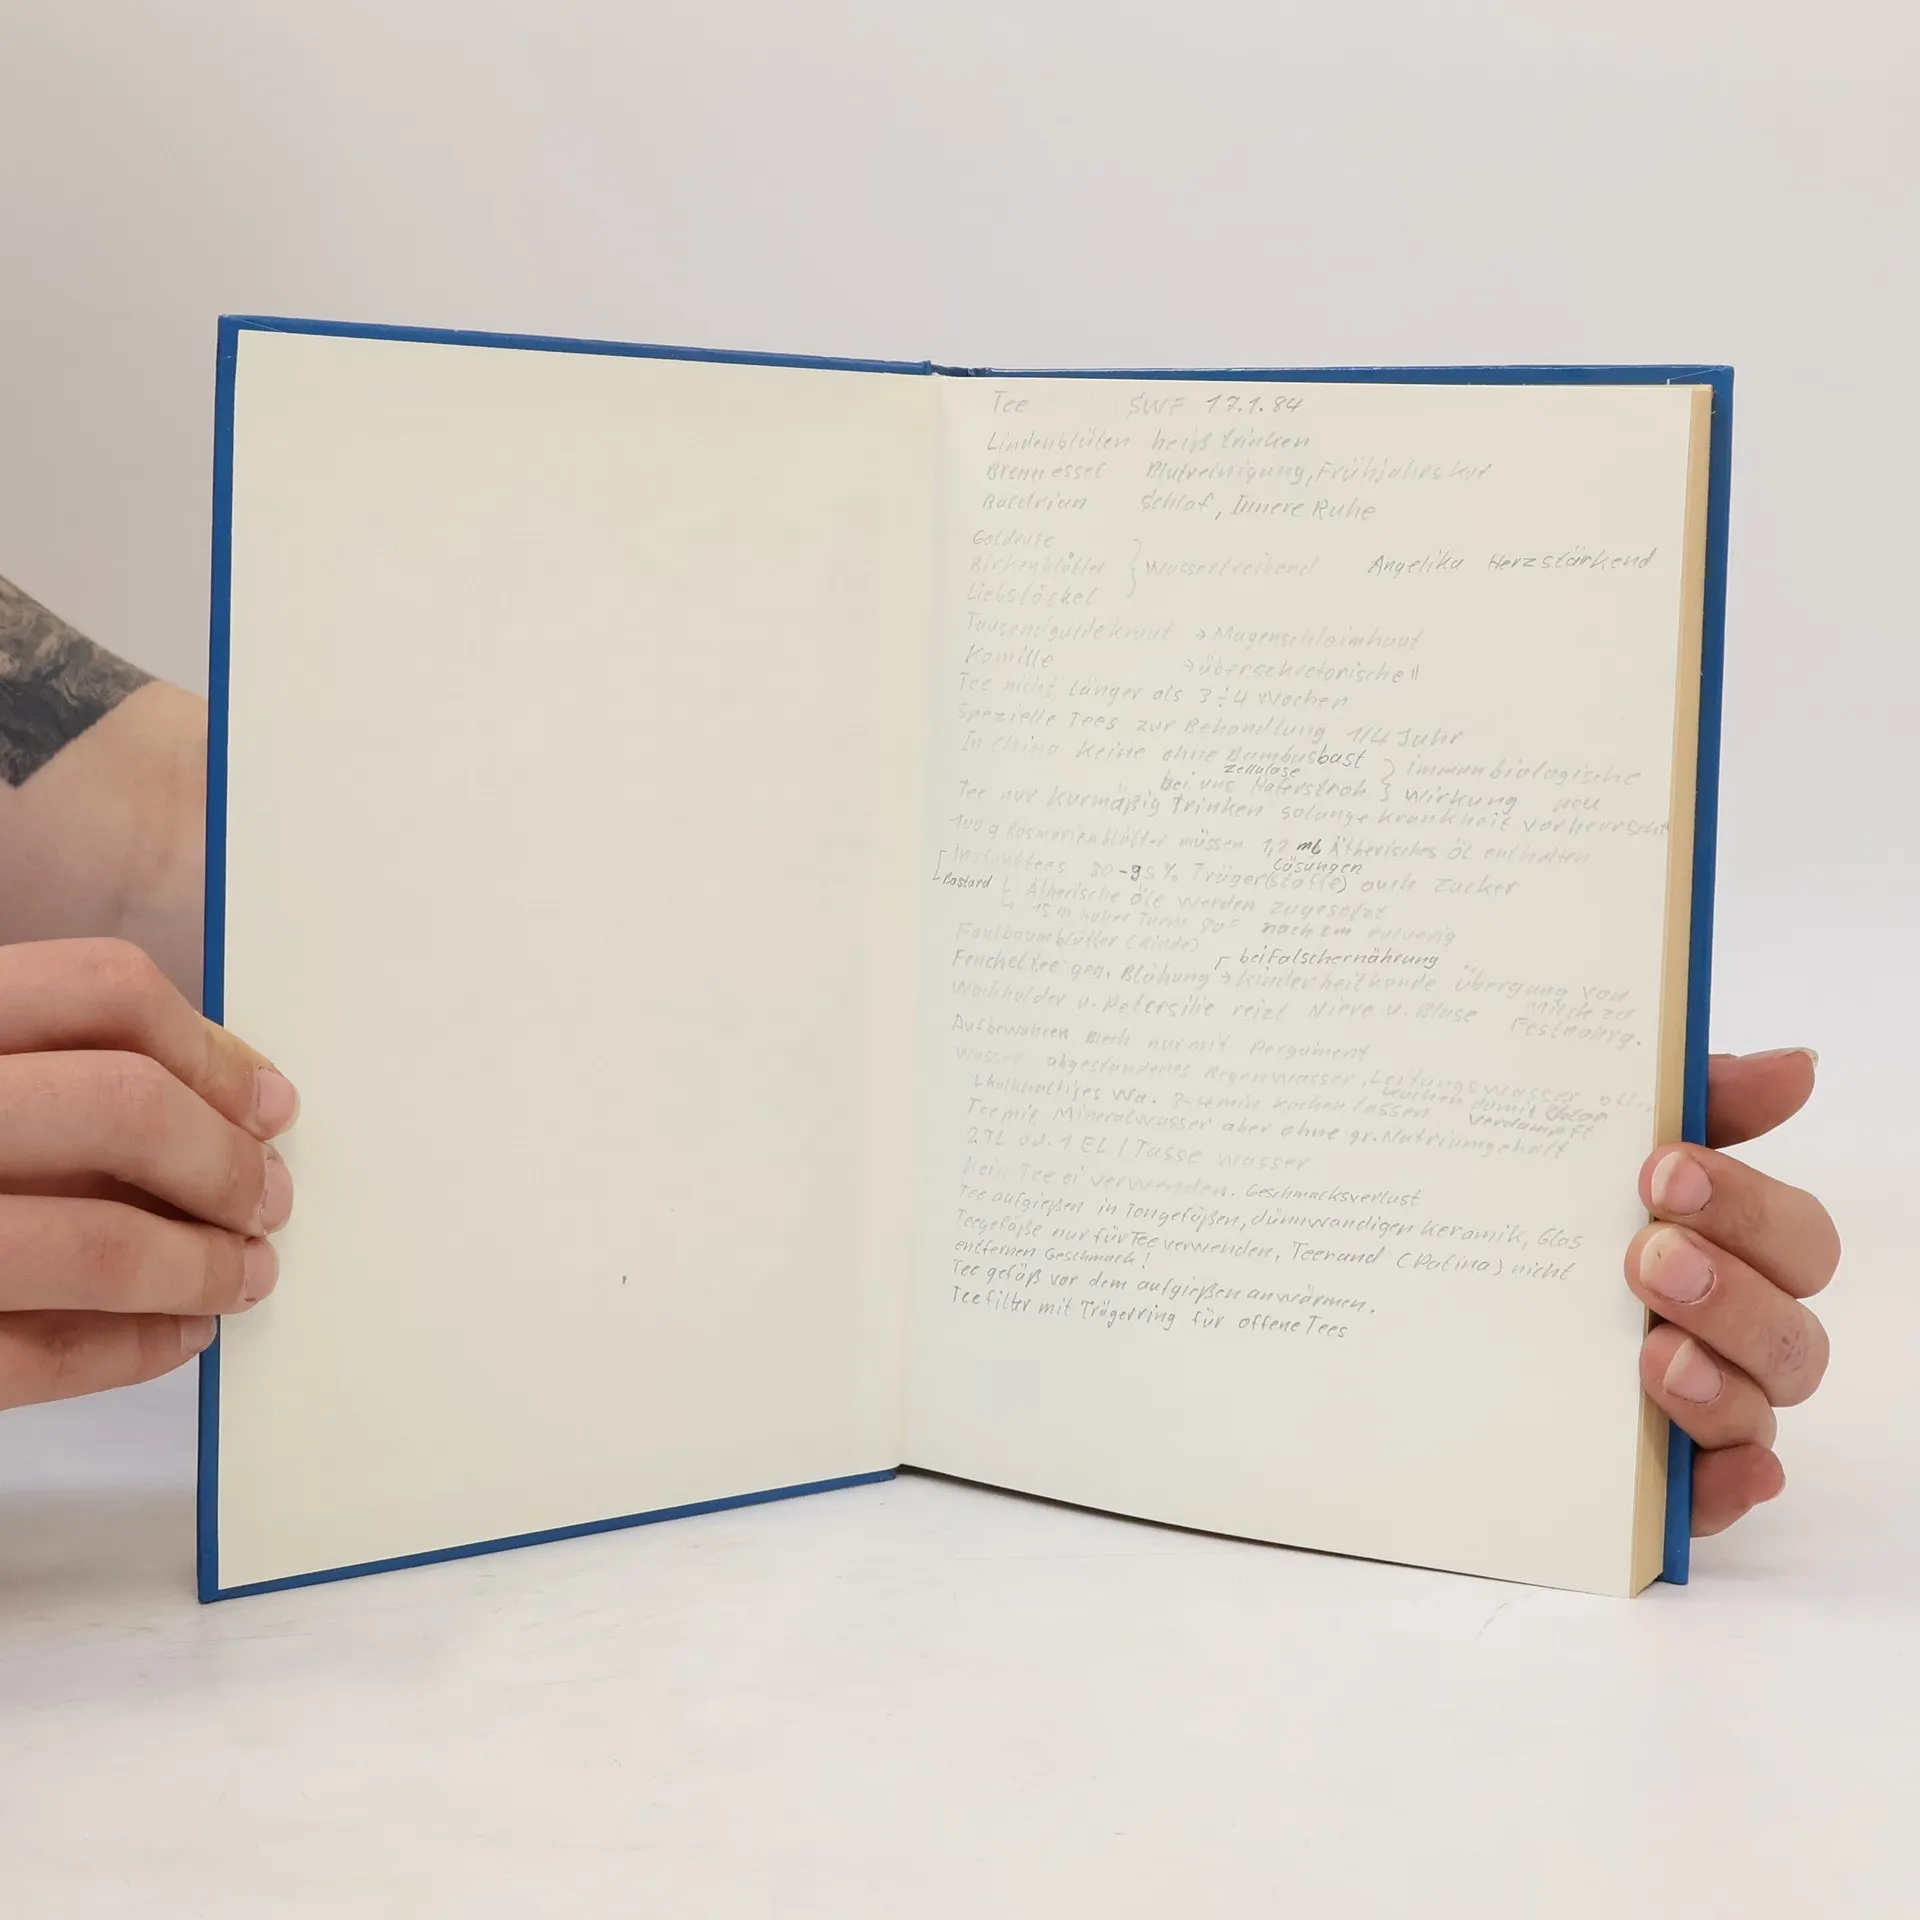 Tee SWF 17.1.84
Lindenblüten heiß trinken
Brennessel Blutreinigung, Frühjahrskur
Baldrian Schlaf, Innere Ruhe
Goldrute
Birkenblätter } Wassertreibend Angelika Herzstärkend
Liebstöckel
Tausendgüldekraut → Magenschleimhaut
Kamille → übersekretorische "
Tee nicht länger als 3÷4 Wochen
Spezielle Tees zur Behandlung 1/4 Jahr
In China keine ohne Bambusbast } immunbiologische
Zellulase
Bei uns Haferstroh } Wirkung neu
Tee nur kurmäßig trinken solange Krankheit vorherrscht
100 g Rosmarienblätter müssen 1,2 ml Ätherisches Öl enthalten
Lösungen
Instanttees 80-95% Träger(stoffe) auch Zucker
Bastard Ätherische Öle werden zugesetzt
15 m hoher Turm 80° nach 2m pulverig
Faulbaumblätter (Rinde)
bei Falschernährung
Fencheltee geg. Blähung → Kinderheilkunde Übergang von
Milch zu
Wachholder u. Petersilie reizt Niere u. Blase Festnahrg.
Aufbewahren Blech nur mit Pergament
Wasser abgestandenes Regenwasser, Leitungswasser
kochen damit Chlor
kalkhaltiges Wa. 3-4 min kochen lassen verdampft
Tee mit Mineralwasser aber ohne gr. Natriumgehalt
2 TL od. 1 EL / Tasse Wasser
Kein Tee ei verwenden. Geschmacksverlust
Tee aufgießen in Tongefäßen, dünnwandigen Keramik, Glas
Teegefäße nur für Tee verwenden, Teerand (Patina) nicht
entfernen Geschmack!
Tee gefäß vor dem aufgießen anwärmen.
Teefilter mit Trägerring für offene Tees